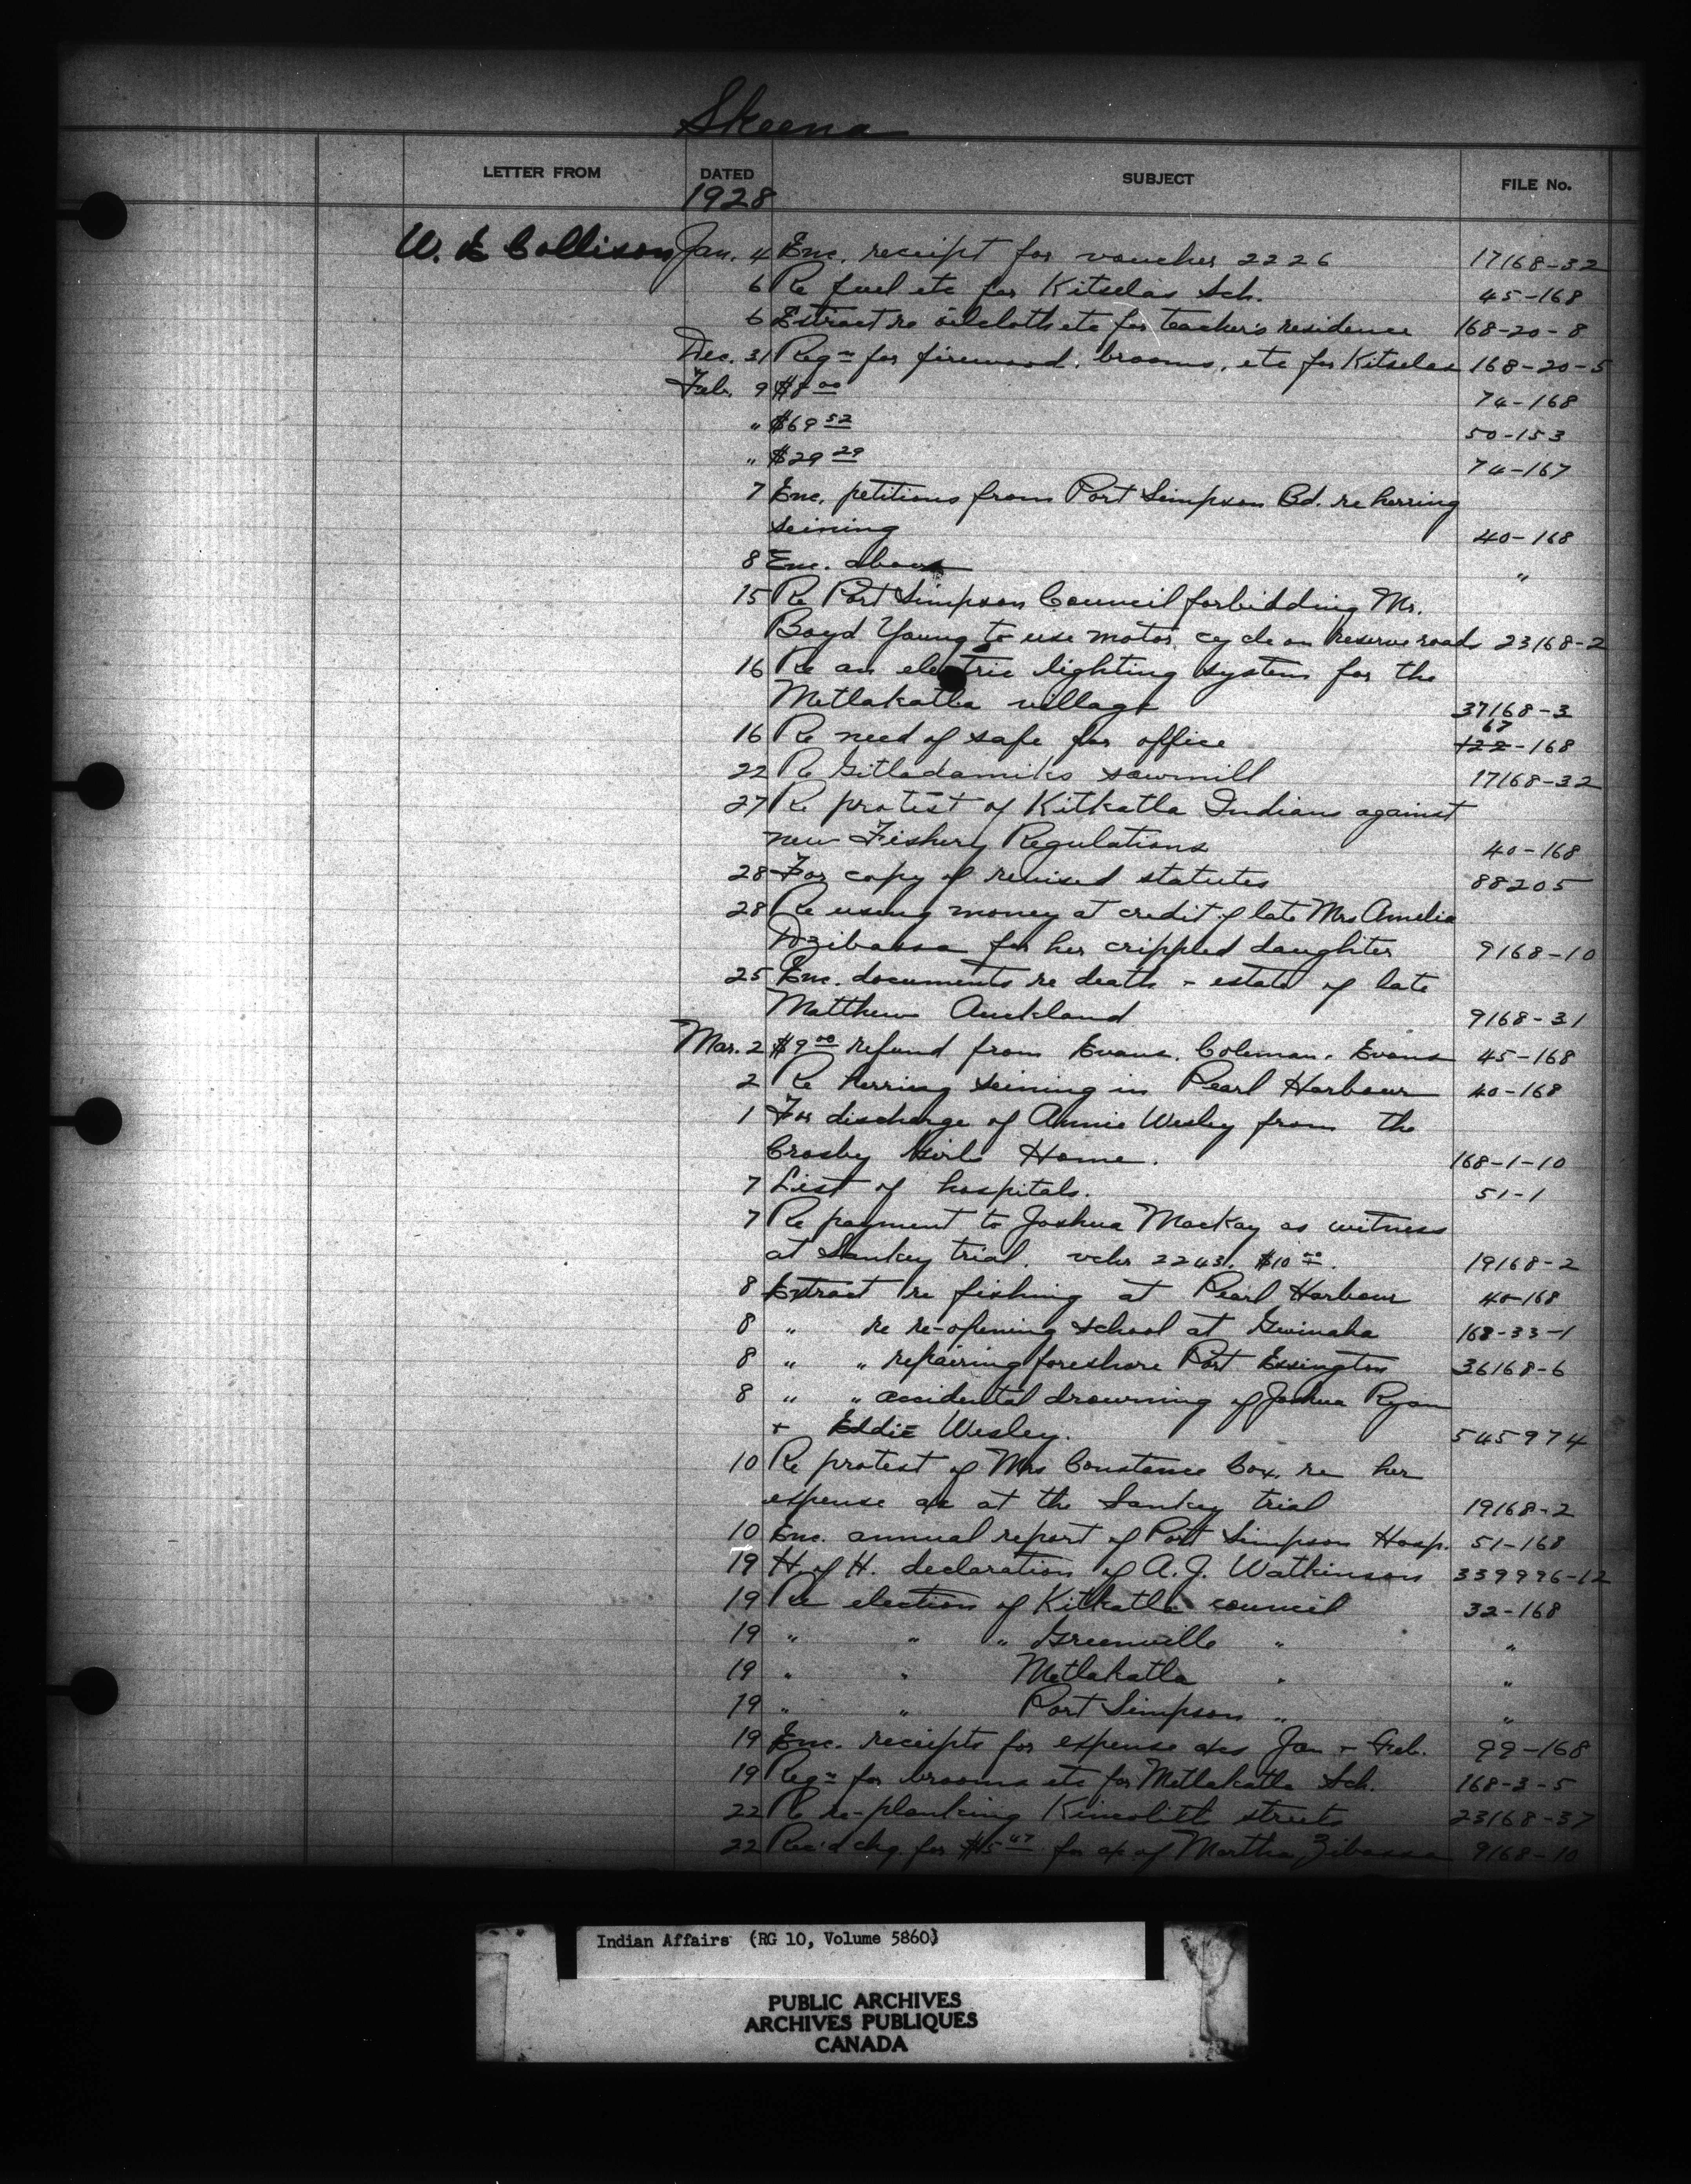 Skeena
LETTER FROM DATED SUBJECT FILE No.
1928
W. E. Collison Jan. 4 Enc. receipt for voucher 2226 17168-32
6 Re fuel etc for Kitselas Sch. 45-168
6 Extract re oilcloth etc for teacher's residence 168-20-8
Dec. 31 Reqn for firewood, brooms, etc for Kitselas 168-20-5
Feb. 9 $8 00 74-168
" $69 52 50-153
" $29 29 74-167
7 Enc. petitions from Port Simpson Bd. re herring
seining 40-168
8 Enc. above "
15 Re Port Simpson Council forbidding Mr.
Boyd Young to use motor cycle on reserve roads 23168-2
16 Re an electric lighting system for the
Metlakatla village 37168-3
16 Re need of safe for office 122-168 67
22 Re Gitladamiks sawmill 17168-32
27 Re protest of Kitkatla Indians against
new Fishery Regulations 40-168
28 For copy of revised statutes 88205
28 Re using money at credit of late Mrs Amelia
Dzibassa for her crippled daughter 9168-10
25 Enc. documents re death + estate of late
Matthew Auckland 9168-31
Mar. 2 $9 00 refund from Evans, Coleman, Evans 45-168
2 Re herring seining in Pearl Harbour 40-168
1 For discharge of Annie Wesley from the
Crosby Girls Home. 168-1-10
7 List of hospitals. 51-1
7 Re payment to Joshua MacKay as witness
at Sankey trial. vchr 2243. $10 00. 19168-2
8 Extract re fishing at Pearl Harbour 40-168
8 " re re-opening school at Gwinaha 168-33-1
8 " " repairing foreshore Port Essington 36168-6
8 " " accidental drowning of Joshua Ryan
+ Eddie Wesley. 545974
10 Re protest of Mrs Constance Cox re her
expense a/c at the Sankey trial 19168-2
10 Enc. annual report of Port Simpson Hosp. 51-168
19 H. of H. declaration of A. J. Watkinson 339996-12
19 Re election of Kitkatla council 32-168
19 " " " Greenville " "
19 " " Metlakatla " "
19 " " Port Simpson " "
19 Enc. receipts for expense a/cs Jan + Feb. 99-168
19 Reqn for brooms etc for Metlakatla Sch. 168-3-5
22 Re re-planking Kincolith streets 23168-37
22 Rec'd chq. for $15 47 for a/c of Martha Zibassa 9168-10
Indian Affairs (RG 10, Volume 5860)
PUBLIC ARCHIVES
ARCHIVES PUBLIQUES
CANADA